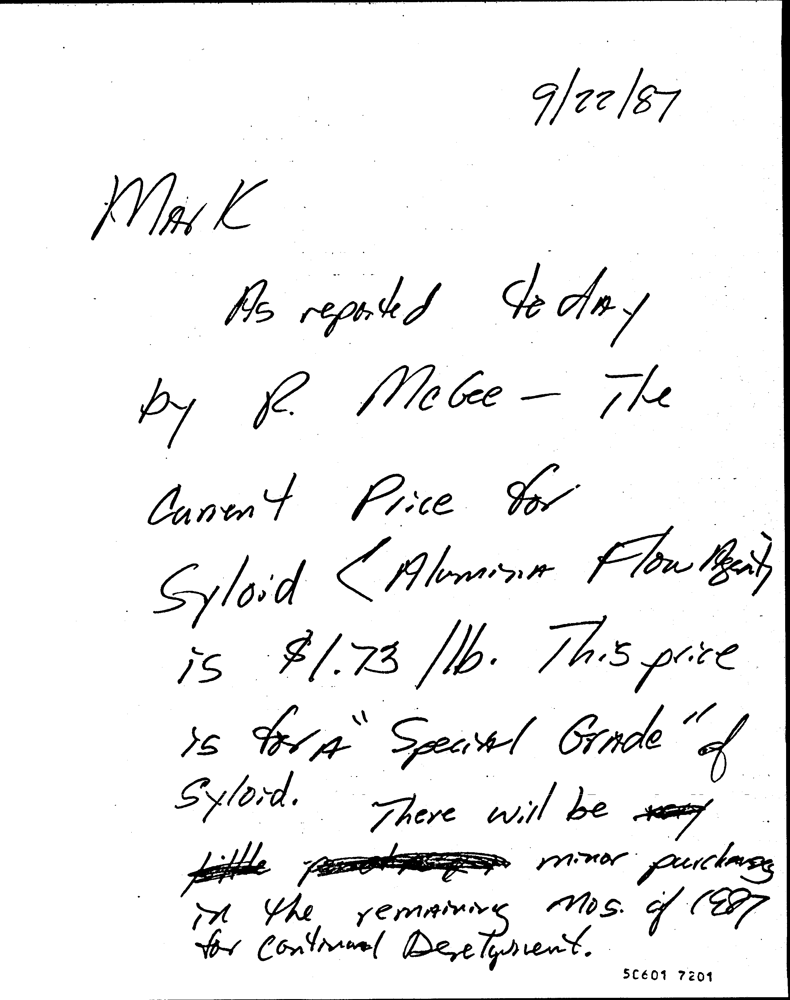 9/22/87
Mark
As reported today
by R. McGee – The
Current Price for
Syloid (Alumina Flow Agent)
is $1.73/lb. This price
is for A "Special Grade" of
Syloid. There will be very
little minor purchases
in the remaining mos. of 1987
for continued Development.
50601 7201